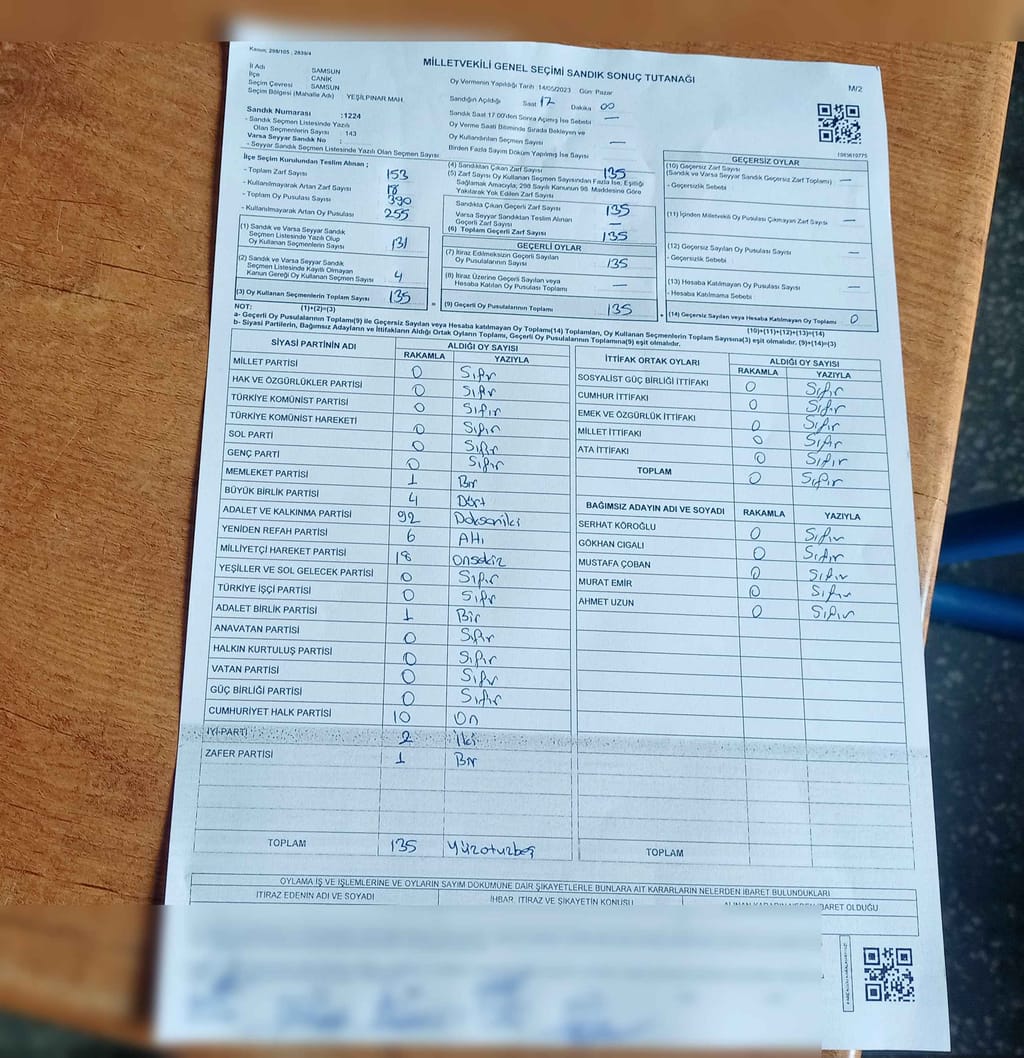 Kanun: 298/105 ; 2839/4
MİLLETVEKİLİ GENEL SEÇİMİ SANDIK SONUÇ TUTANAĞI
M/2
İl Adı SAMSUN
İlçe CANİK
Seçim Çevresi SAMSUN
Seçim Bölgesi (Mahalle Adı) YEŞİLPINAR MAH.
Oy Vermenin Yapıldığı Tarih :14/05/2023 Gün: Pazar
Sandığın Açıldığı Saat 17 Dakika 00
Sandık Saat 17:00'den Sonra Açılmış İse Sebebi —
Oy Verme Saati Bitiminde Sırada Bekleyen ve
Oy Kullandırılan Seçmen Sayısı —
Birden Fazla Sayım Döküm Yapılmış İse Sayısı
Sandık Numarası :1224
- Sandık Seçmen Listesinde Yazılı
Olan Seçmenlerin Sayısı : 143
Varsa Seyyar Sandık No :
- Seyyar Sandık Seçmen Listesinde Yazılı Olan Seçmen Sayısı:
İlçe Seçim Kurulundan Teslim Alınan ;
- Toplam Zarf Sayısı 153
- Kullanılmayarak Artan Zarf Sayısı 18
- Toplam Oy Pusulası Sayısı 390
- Kullanılmayarak Artan Oy Pusulası 255
(1) Sandık ve Varsa Seyyar Sandık
Seçmen Listesinde Yazılı Olup
Oy Kullanan Seçmenlerin Sayısı 131
(2) Sandık ve Varsa Seyyar Sandık
Seçmen Listesinde Kayıtlı Olmayan
Kanun Gereği Oy Kullanan Seçmen Sayısı 4
(3) Oy Kullanan Seçmenlerin Toplam Sayısı 135
(4) Sandıktan Çıkan Zarf Sayısı 135
(5) Zarf Sayısı Oy Kullanan Seçmen Sayısından Fazla İse, Eşitliği
Sağlamak Amacıyla, 298 Sayılı Kanunun 98. Maddesine Göre
Yakılarak Yok Edilen Zarf Sayısı
Sandıkta Çıkan Geçerli Zarf Sayısı 135
Varsa Seyyar Sandıktan Teslim Alınan
Geçerli Zarf Sayısı —
(6) Toplam Geçerli Zarf Sayısı 135
GEÇERLİ OYLAR
(7) İtiraz Edilmeksizin Geçerli Sayılan
Oy Pusulalarının Sayısı 135
(8) İtiraz Üzerine Geçerli Sayılan veya
Hesaba Katılan Oy Pusulası Toplamı —
= (9) Geçerli Oy Pusulalarının Toplamı 135
GEÇERSİZ OYLAR
(10) Geçersiz Zarf Sayısı
(Sandık ve Varsa Seyyar Sandık Geçersiz Zarf Toplamı) —
- Geçersizlik Sebebi
(11) İçinden Milletvekili Oy Pusulası Çıkmayan Zarf Sayısı —
(12) Geçersiz Sayılan Oy Pusulası Sayısı —
- Geçersizlik Sebebi
(13) Hesaba Katılmayan Oy Pusulası Sayısı —
- Hesaba Katılmama Sebebi
+ (14) Geçersiz Sayılan veya Hesaba Katılmayan Oy Toplamı 0
NOT: (1)+(2)=(3)
(10)+(11)+(12)+(13)=(14)
a- Geçerli Oy Pusulalarının Toplamı(9) ile Geçersiz Sayılan veya Hesaba katılmayan Oy Toplamı(14) Toplamları, Oy Kullanan Seçmenlerin Toplam Sayısına(3) eşit olmalıdır. (9)+(14)=(3)
b- Siyasi Partilerin, Bağımsız Adayların ve İttifakların Aldığı Ortak Oyların Toplamı, Geçerli Oy Pusulalarının Toplamına(9) eşit olmalıdır.
SİYASİ PARTİNİN ADI ALDIĞI OY SAYISI
RAKAMLA YAZIYLA
MİLLET PARTİSİ 0 Sıfır
HAK VE ÖZGÜRLÜKLER PARTİSİ 0 Sıfır
TÜRKİYE KOMÜNİST PARTİSİ 0 Sıfır
TÜRKİYE KOMÜNİST HAREKETİ 0 Sıfır
SOL PARTİ 0 Sıfır
GENÇ PARTİ 0 Sıfır
MEMLEKET PARTİSİ 1 Bir
BÜYÜK BİRLİK PARTİSİ 4 Dört
ADALET VE KALKINMA PARTİSİ 92 Doksaniki
YENİDEN REFAH PARTİSİ 6 Altı
MİLLİYETÇİ HAREKET PARTİSİ 18 Onsekiz
YEŞİLLER VE SOL GELECEK PARTİSİ 0 Sıfır
TÜRKİYE İŞÇİ PARTİSİ 0 Sıfır
ADALET BİRLİK PARTİSİ 1 Bir
ANAVATAN PARTİSİ 0 Sıfır
HALKIN KURTULUŞ PARTİSİ 0 Sıfır
VATAN PARTİSİ 0 Sıfır
GÜÇ BİRLİĞİ PARTİSİ 0 Sıfır
CUMHURİYET HALK PARTİSİ 10 On
İYİ PARTİ 2 İki
ZAFER PARTİSİ 1 Bir
TOPLAM 135 Yüzotuzbeş
İTTİFAK ORTAK OYLARI ALDIĞI OY SAYISI
RAKAMLA YAZIYLA
SOSYALİST GÜÇ BİRLİĞİ İTTİFAKI 0 Sıfır
CUMHUR İTTİFAKI 0 Sıfır
EMEK VE ÖZGÜRLÜK İTTİFAKI 0 Sıfır
MİLLET İTTİFAKI 0 Sıfır
ATA İTTİFAKI 0 Sıfır
TOPLAM 0 Sıfır
BAĞIMSIZ ADAYIN ADI VE SOYADI RAKAMLA YAZIYLA
SERHAT KÖROĞLU 0 Sıfır
GÖKHAN CIGALI 0 Sıfır
MUSTAFA ÇOBAN 0 Sıfır
MURAT EMİR 0 Sıfır
AHMET UZUN 0 Sıfır
TOPLAM
OYLAMA İŞ VE İŞLEMLERİNE VE OYLARIN SAYIM DÖKÜMÜNE DAİR ŞİKAYETLERLE BUNLARA AİT KARARLARIN NELERDEN İBARET BULUNDUKLARI
İTİRAZ EDENİN ADI VE SOYADI İHBAR, İTİRAZ VE ŞİKAYETİN KONUSU İBARET OLDUĞU